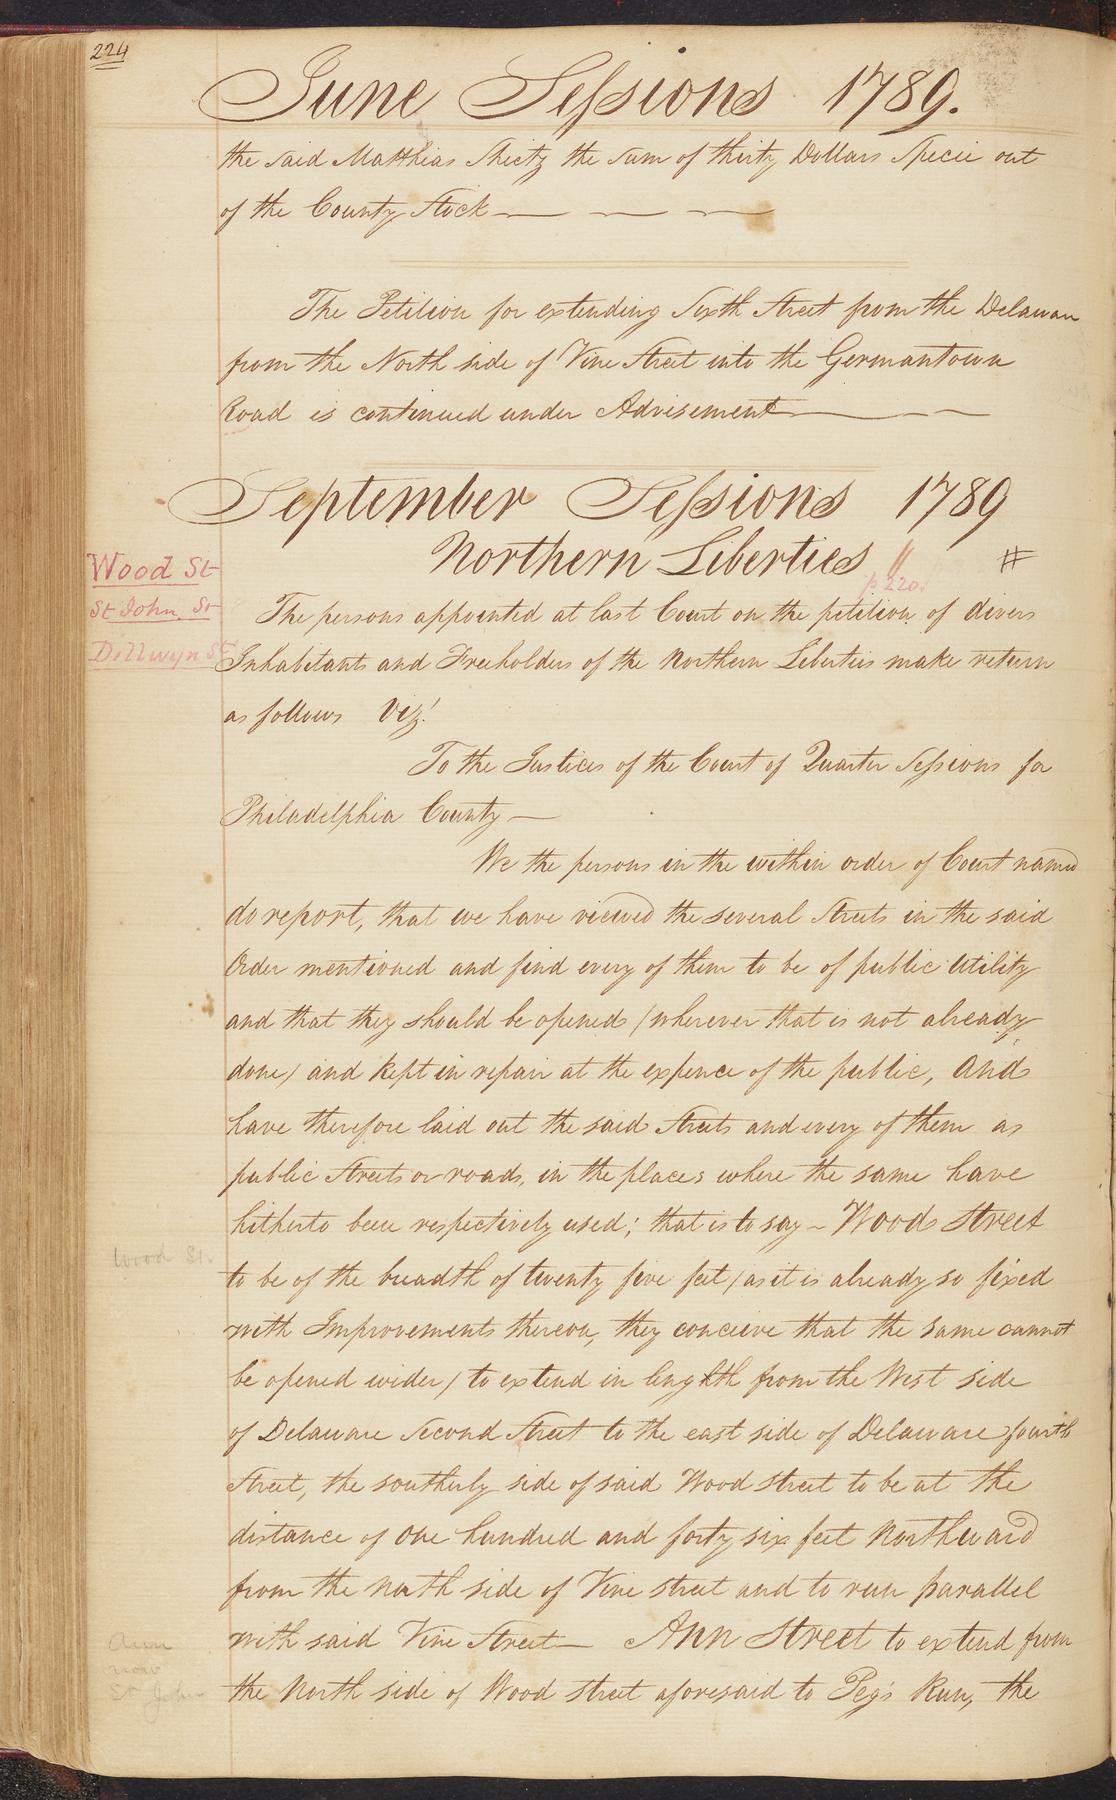 224
June Sessions 1789.
the said Matthias Sheetz the sum of thirty Dollars Specie out
of the County Stock
The Petition for extending Sixth Street from the Delaware
from the North side of Vine Street into the Germantown
Road is continued under Advisement
September Sessions 1789
Northern Liberties " #
p 220.
Wood St
St John St
Dillwyn St
The persons appointed at last Court on the petition of divers
Inhabitants and Freeholders of the Northern Liberties make return
as follows Vizt
To the Justices of the Court of Quarter Sessions for
Philadelphia County
We the persons in the within order of Court named
do report, that we have viewed the several Streets in the said
Order mentioned and find every of them to be of public Utility
and that they should be opened (wherever that is not already
done) and kept in repair at the expence of the public, And
have therefore laid out the said Streets and every of them as
public Streets or roads, in the places where the same have
hitherto been respectively used; that is to say - Wood Street
Wood St.
to be of the breadth of twenty five feet (as it is already so fixed
with Improvements thereon, they concieve that the same cannot
be opened wider) to extend in lenghth from the West side
of Delaware Second Street to the east side of Delaware fourth
Street, the southerly side of said Wood street to be at the
distance of One hundred and forty six feet Northward
from the North side of Vine street and to run parallel
with said Vine Street— Ann Street to extend from
Ann
now
St John
the North side of Wood street aforesaid to Peg's Run, the